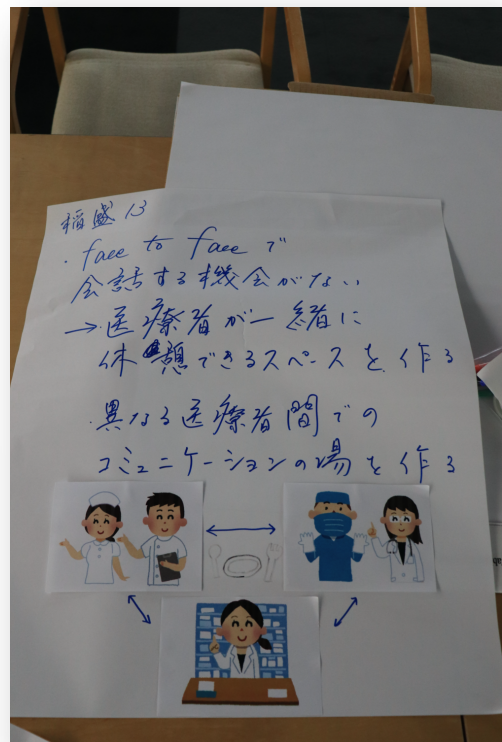 稲盛 13
・face to face で
会話する機会がない
→医療者が一緒に
休憩できるスペースを作る
・異なる医療者間での
コミュニケーションの場を作る